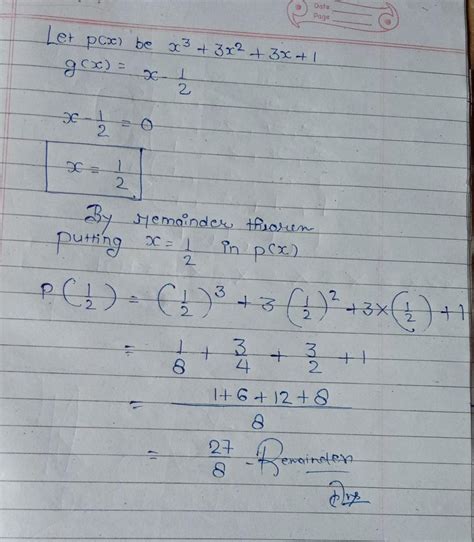 Date
Page
Let p(x) be x³ + 3x² + 3x + 1
g(x) = x - 1/2
x - 1/2 = 0
x = 1/2
By remainder theorem
putting x = 1/2 in p(x)
P(1/2) = (1/2)³ + 3(1/2)² + 3×(1/2) + 1
= 1/8 + 3/4 + 3/2 + 1
= 1+6+12+8/8
= 27/8 - Remainder
Ans